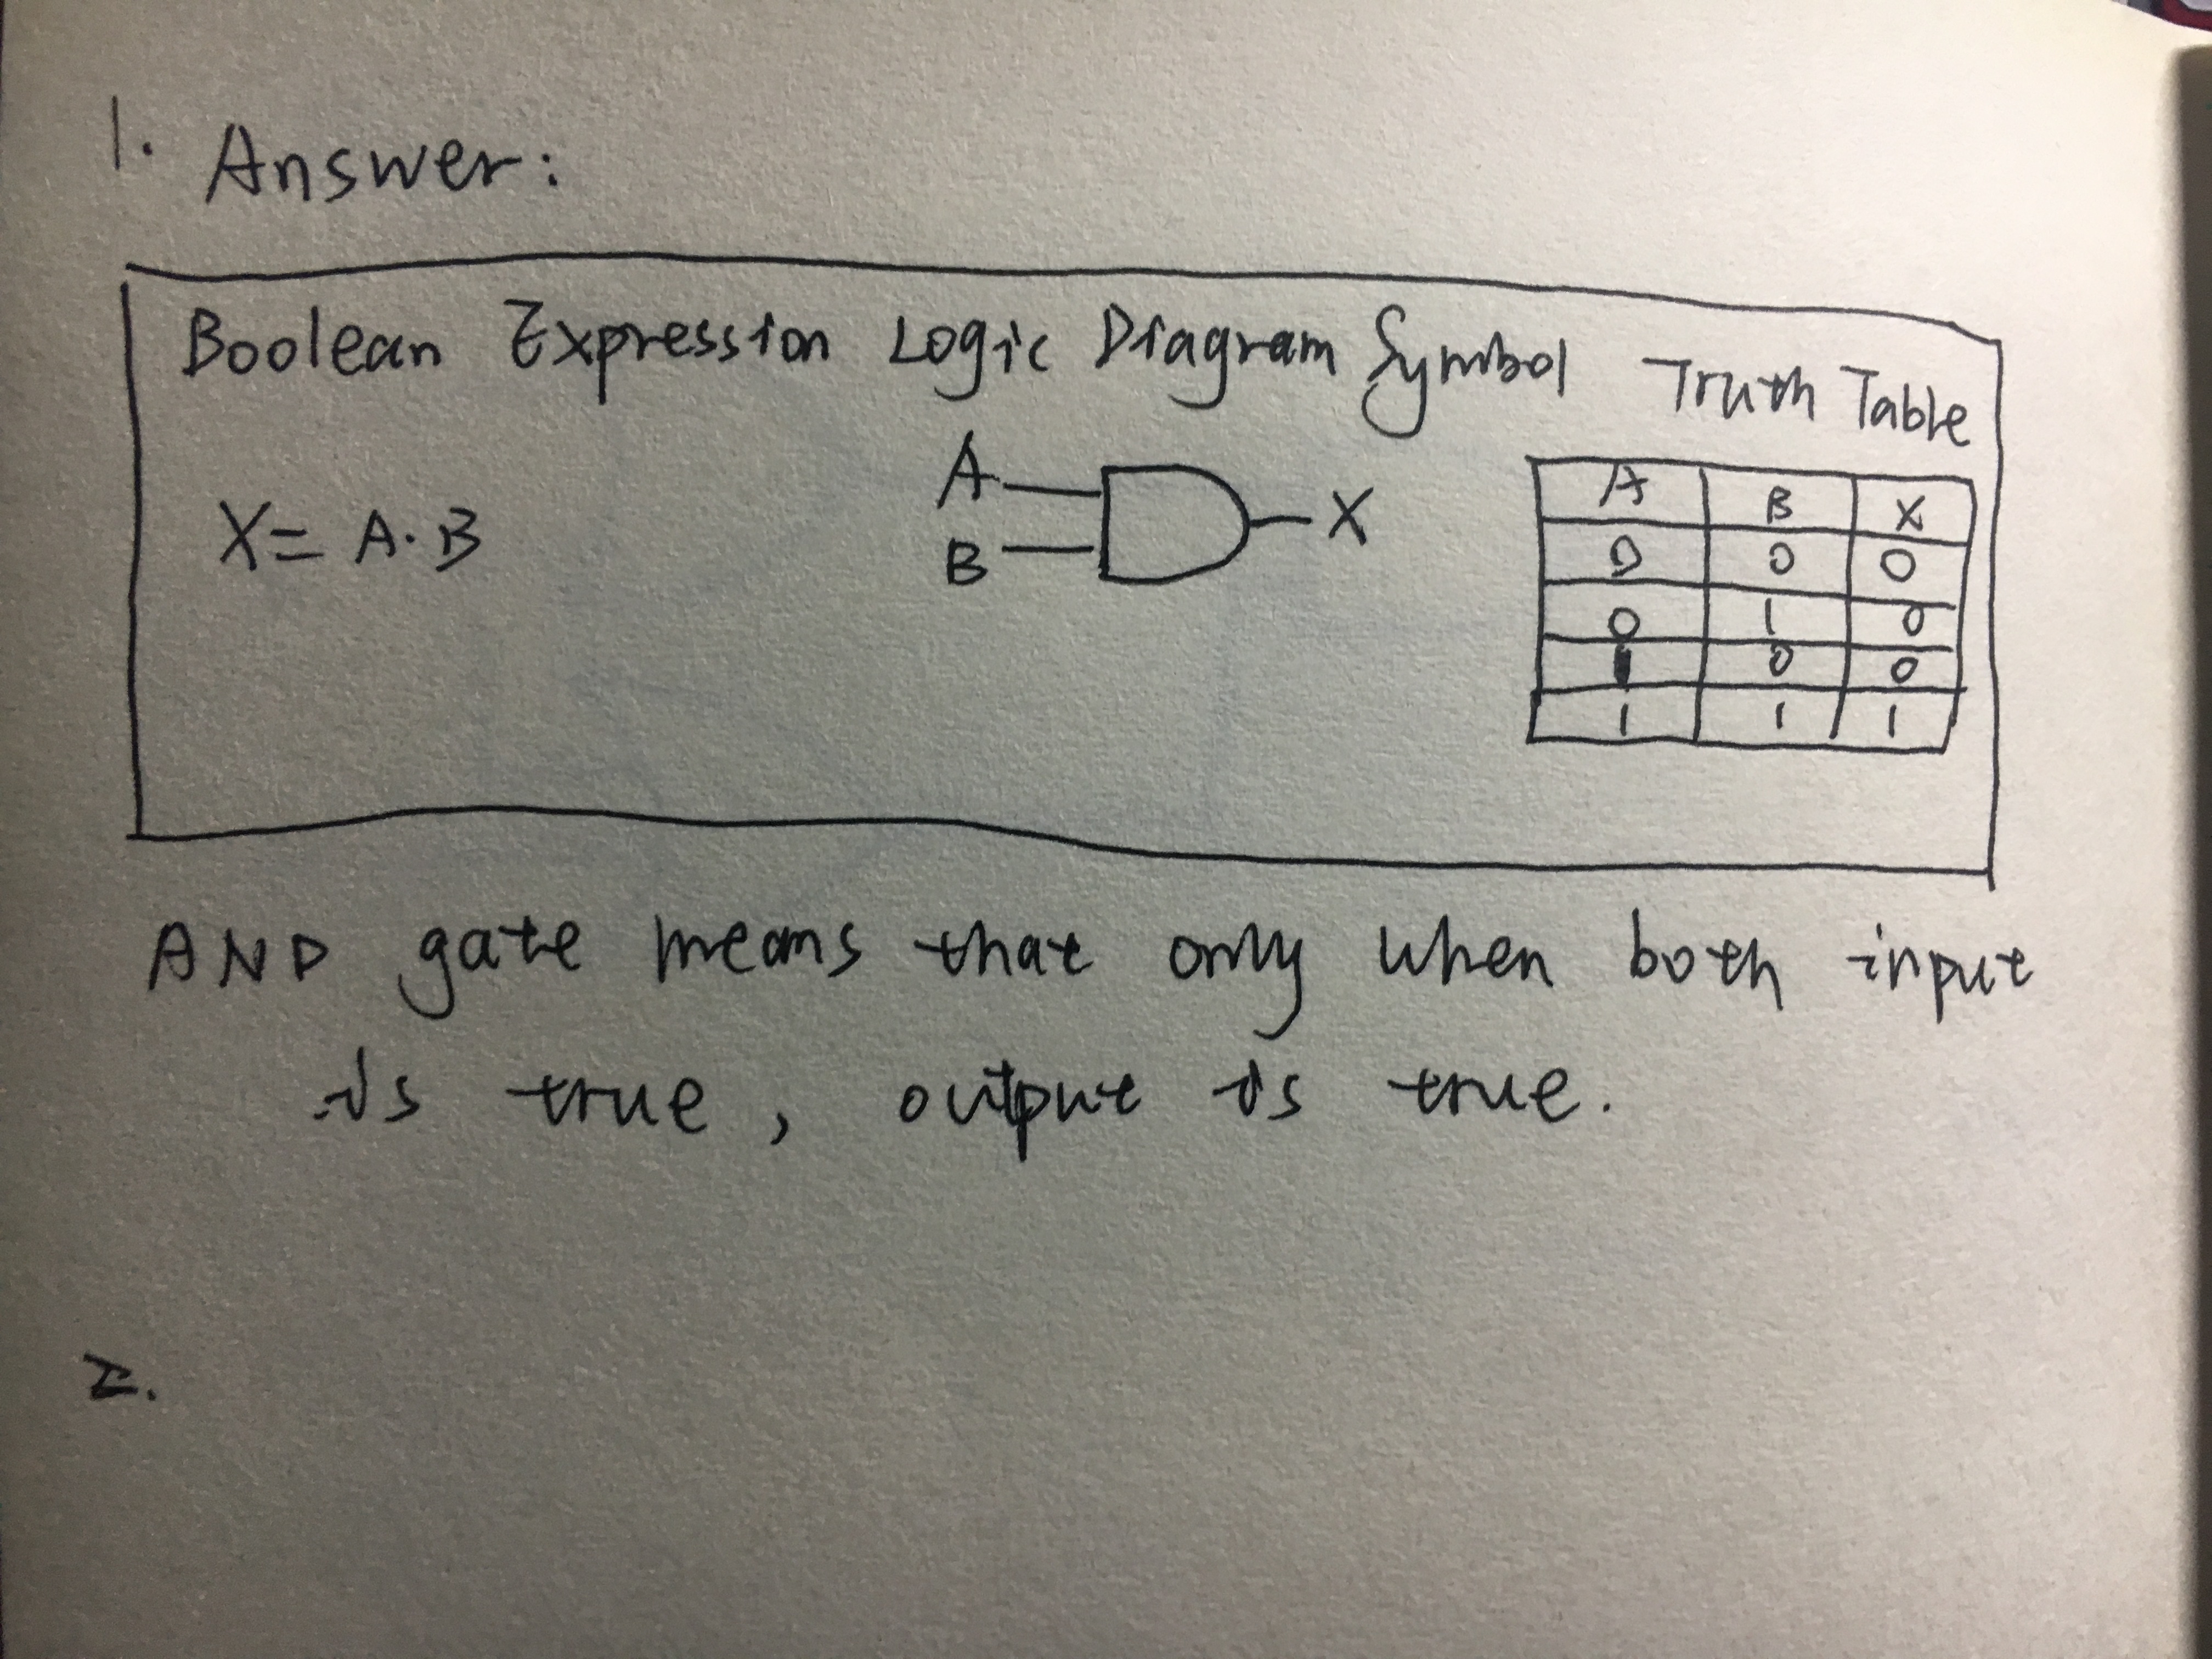 1. Answer:
Boolean Expression Logic Diagram Symbol Truth Table
X = A·B
A
B
X
A B X
0 0 0
0 1 0
1 0 0
1 1 1
AND gate means that only when both input
is true, output is true.
2.